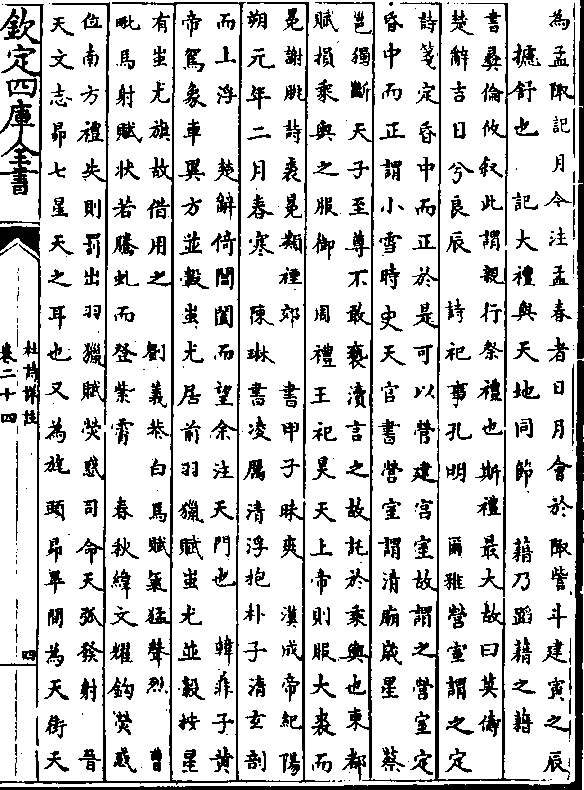 為孟陬記月令注孟春者日月會於陬訾斗建寅之辰
攄舒也　記大禮與天地同節　藉乃蹈藉之藉
書彝倫攸叙此謂親行祭禮也斯禮最大故曰英儔
楚解吉日兮良辰　詩祀事孔明　爾雅營室謂之定
詩箋定昏中而正於是可以營建宫室故謂之營室定
昏中而正謂小雪時史天官書營室謂清廟歲星　蔡
邕獨斷天子至尊不敢褻瀆言之故託於乘輿也東都
賦損乘輿之服御　周禮王祀昊天上帝則服大裘而
冕謝朓詩裘冕類禋郊　書甲子昧爽　漢成帝紀陽
朔元年二月春寒　陳琳書凌厲清浮抱朴子清玄剖
而上浮　楚解倚閶闔而望余注天門也　韓非子黄
帝駕象車異方並轂蚩尤居前羽獵賦蚩尤並轂按星
有蚩尤旗故借用之　劉義恭白馬賦氣猛聲烈　曹
毗馬射賦狀若騰虬而登紫霄　春秋緯文耀鈎熒惑
位南方禮失則罰出羽獵賦熒惑司命天弧發射　晉
天文志昴七星天之耳也又為旄頭昴畢間為天街天
欽定四庫全書
杜詩詳註
卷二十四
四